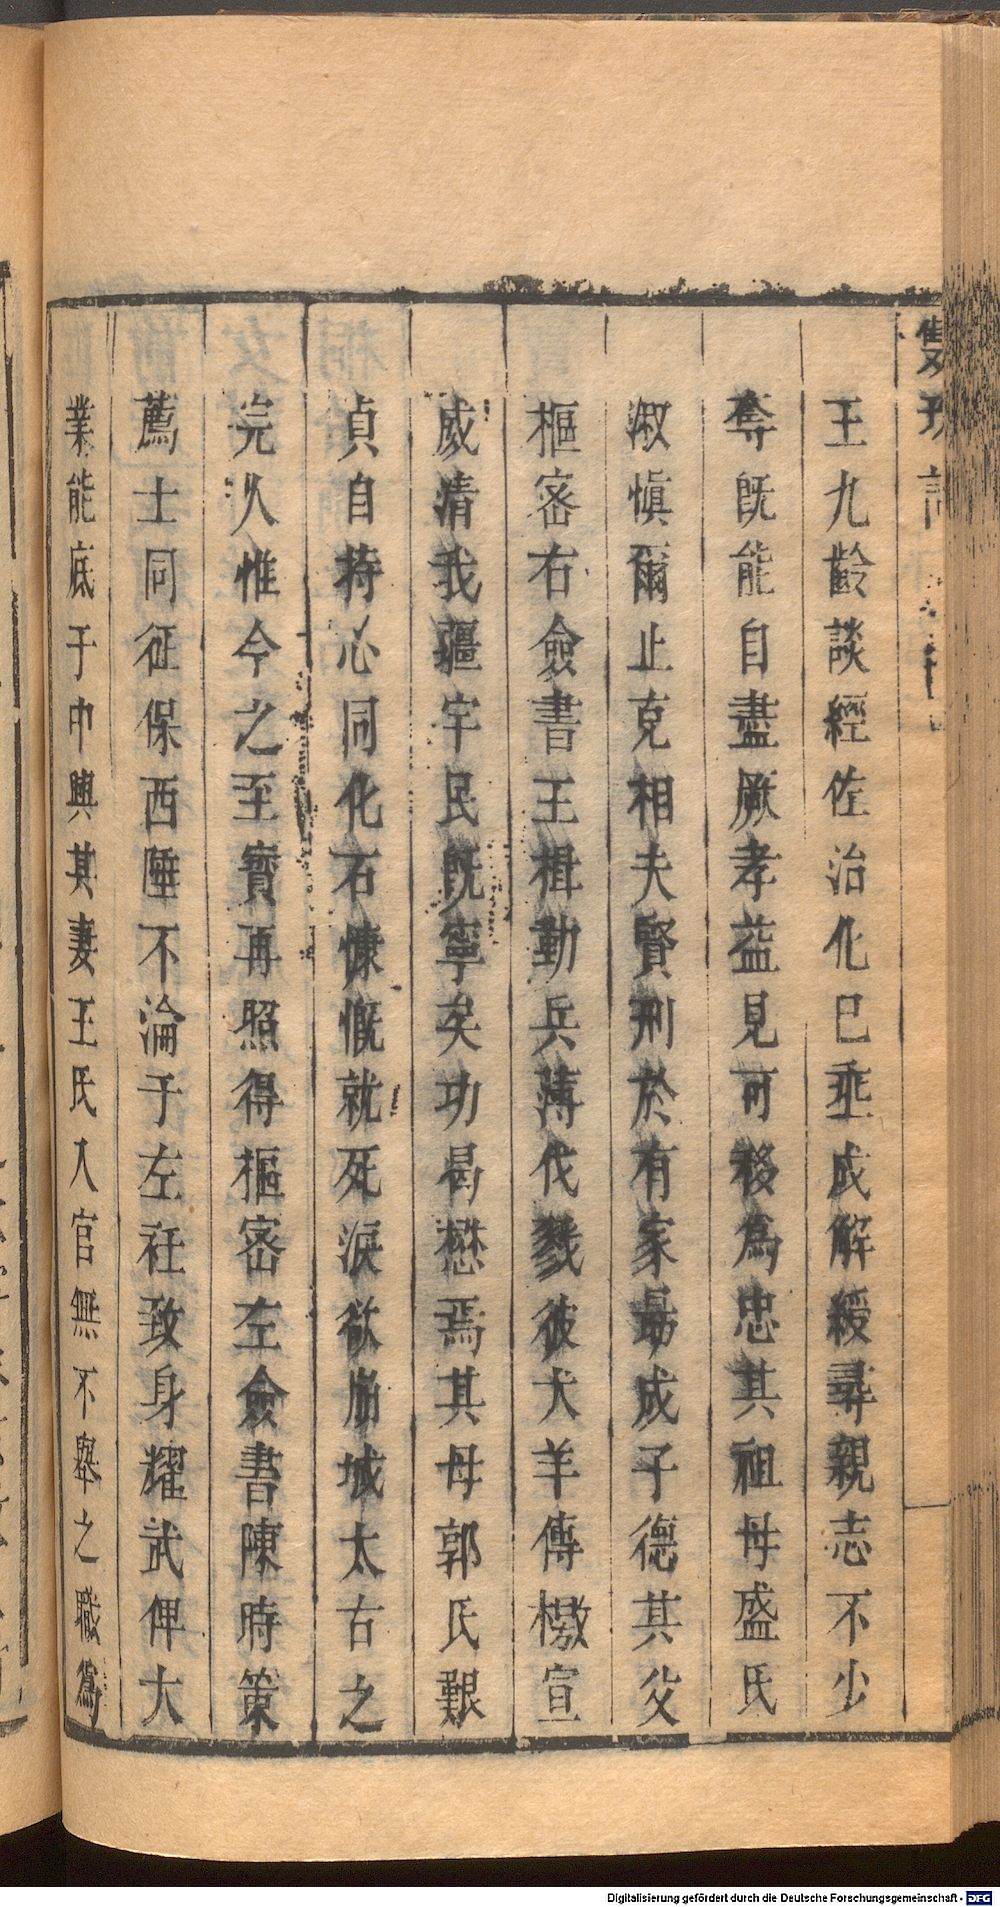 雙珠記
王九齡談經佐治化已乖成解綬尋親志不少
奪旣能自盡厥孝益見可移爲忠其祖母盛氏
淑愼爾止克相夫賢刑於有家易成子德其父
樞密右僉書王楫勤兵薄伐戮彼犬羊傳檄宣
威淸我疆宇民旣寧矣功曷懋焉其母郭氏艱
貞自持心同化石慷慨就死淚欲崩城太古之
完人惟今之至寶再照得樞密左僉書陳時策
薦士同征保西陲不淪于左衽致身耀武俾大
業能底于中興其妻王氏入官無不舉之職爲
Digitalisierung gefördert durch die Deutsche Forschungsgemeinschaft - DFG